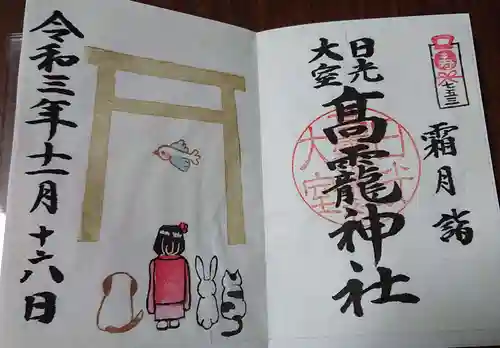 七五三
霜月詣
日光
大室
髙龗神社
令和三年十一月十六日